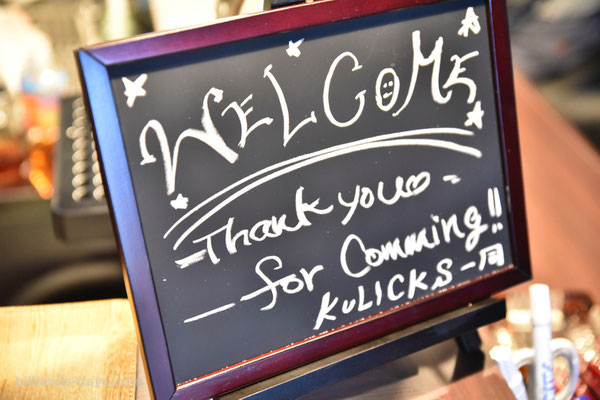 WELCOME
Thank you
for Comming!!
KULICKS一同